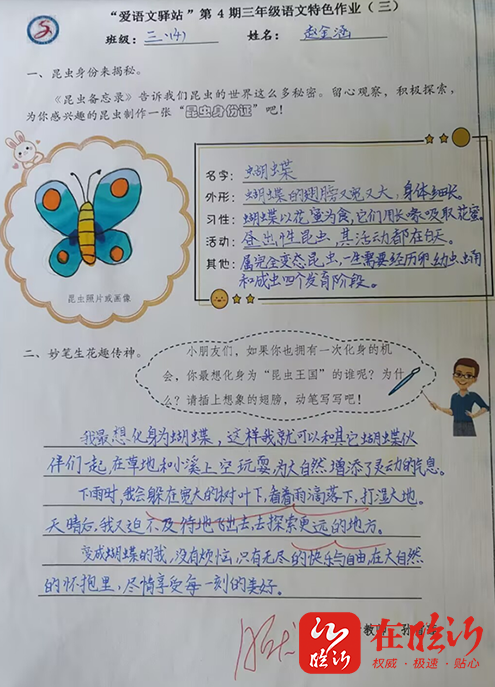 “爱语文驿站”第4期三年级语文特色作业（三）
班级：三.(4) 姓名：赵全涵
一、昆虫身份来揭秘。
《昆虫备忘录》告诉我们昆虫的世界这么多秘密。留心观察，积极探索，
为你感兴趣的昆虫制作一张“昆虫身份证”吧！
名字：蝴蝶
外形：蝴蝶的翅膀又宽又大，身体细长。
习性：蝴蝶以花蜜为食，它们用长喙吸取花蜜。
活动：昼出性昆虫，其活动都在白天。
其他：属完全变态昆虫，一生需要经历卵、幼虫、虫蛹
和成虫四个发育阶段。
昆虫照片或画像
二、妙笔生花趣传神。
小朋友们，如果你也拥有一次化身的机
会，你最想化身为“昆虫王国”的谁呢？为什
么？请插上想象的翅膀，动笔写写吧！
我最想化身为蝴蝶，这样我就可以和其它蝴蝶伙
伴们一起在草地和小溪上空玩耍，为大自然增添了灵动的气息。
下雨时，我会躲在宽大的树叶下，看着雨滴落下，打湿大地。
天晴后，我又迫不及待地飞出去，去探索更远的地方。
变成蝴蝶的我，没有烦恼，只有无尽的快乐与自由，在大自然
的怀抱里，尽情享受每一刻的美好。
教
在临沂
权威·极速·贴心